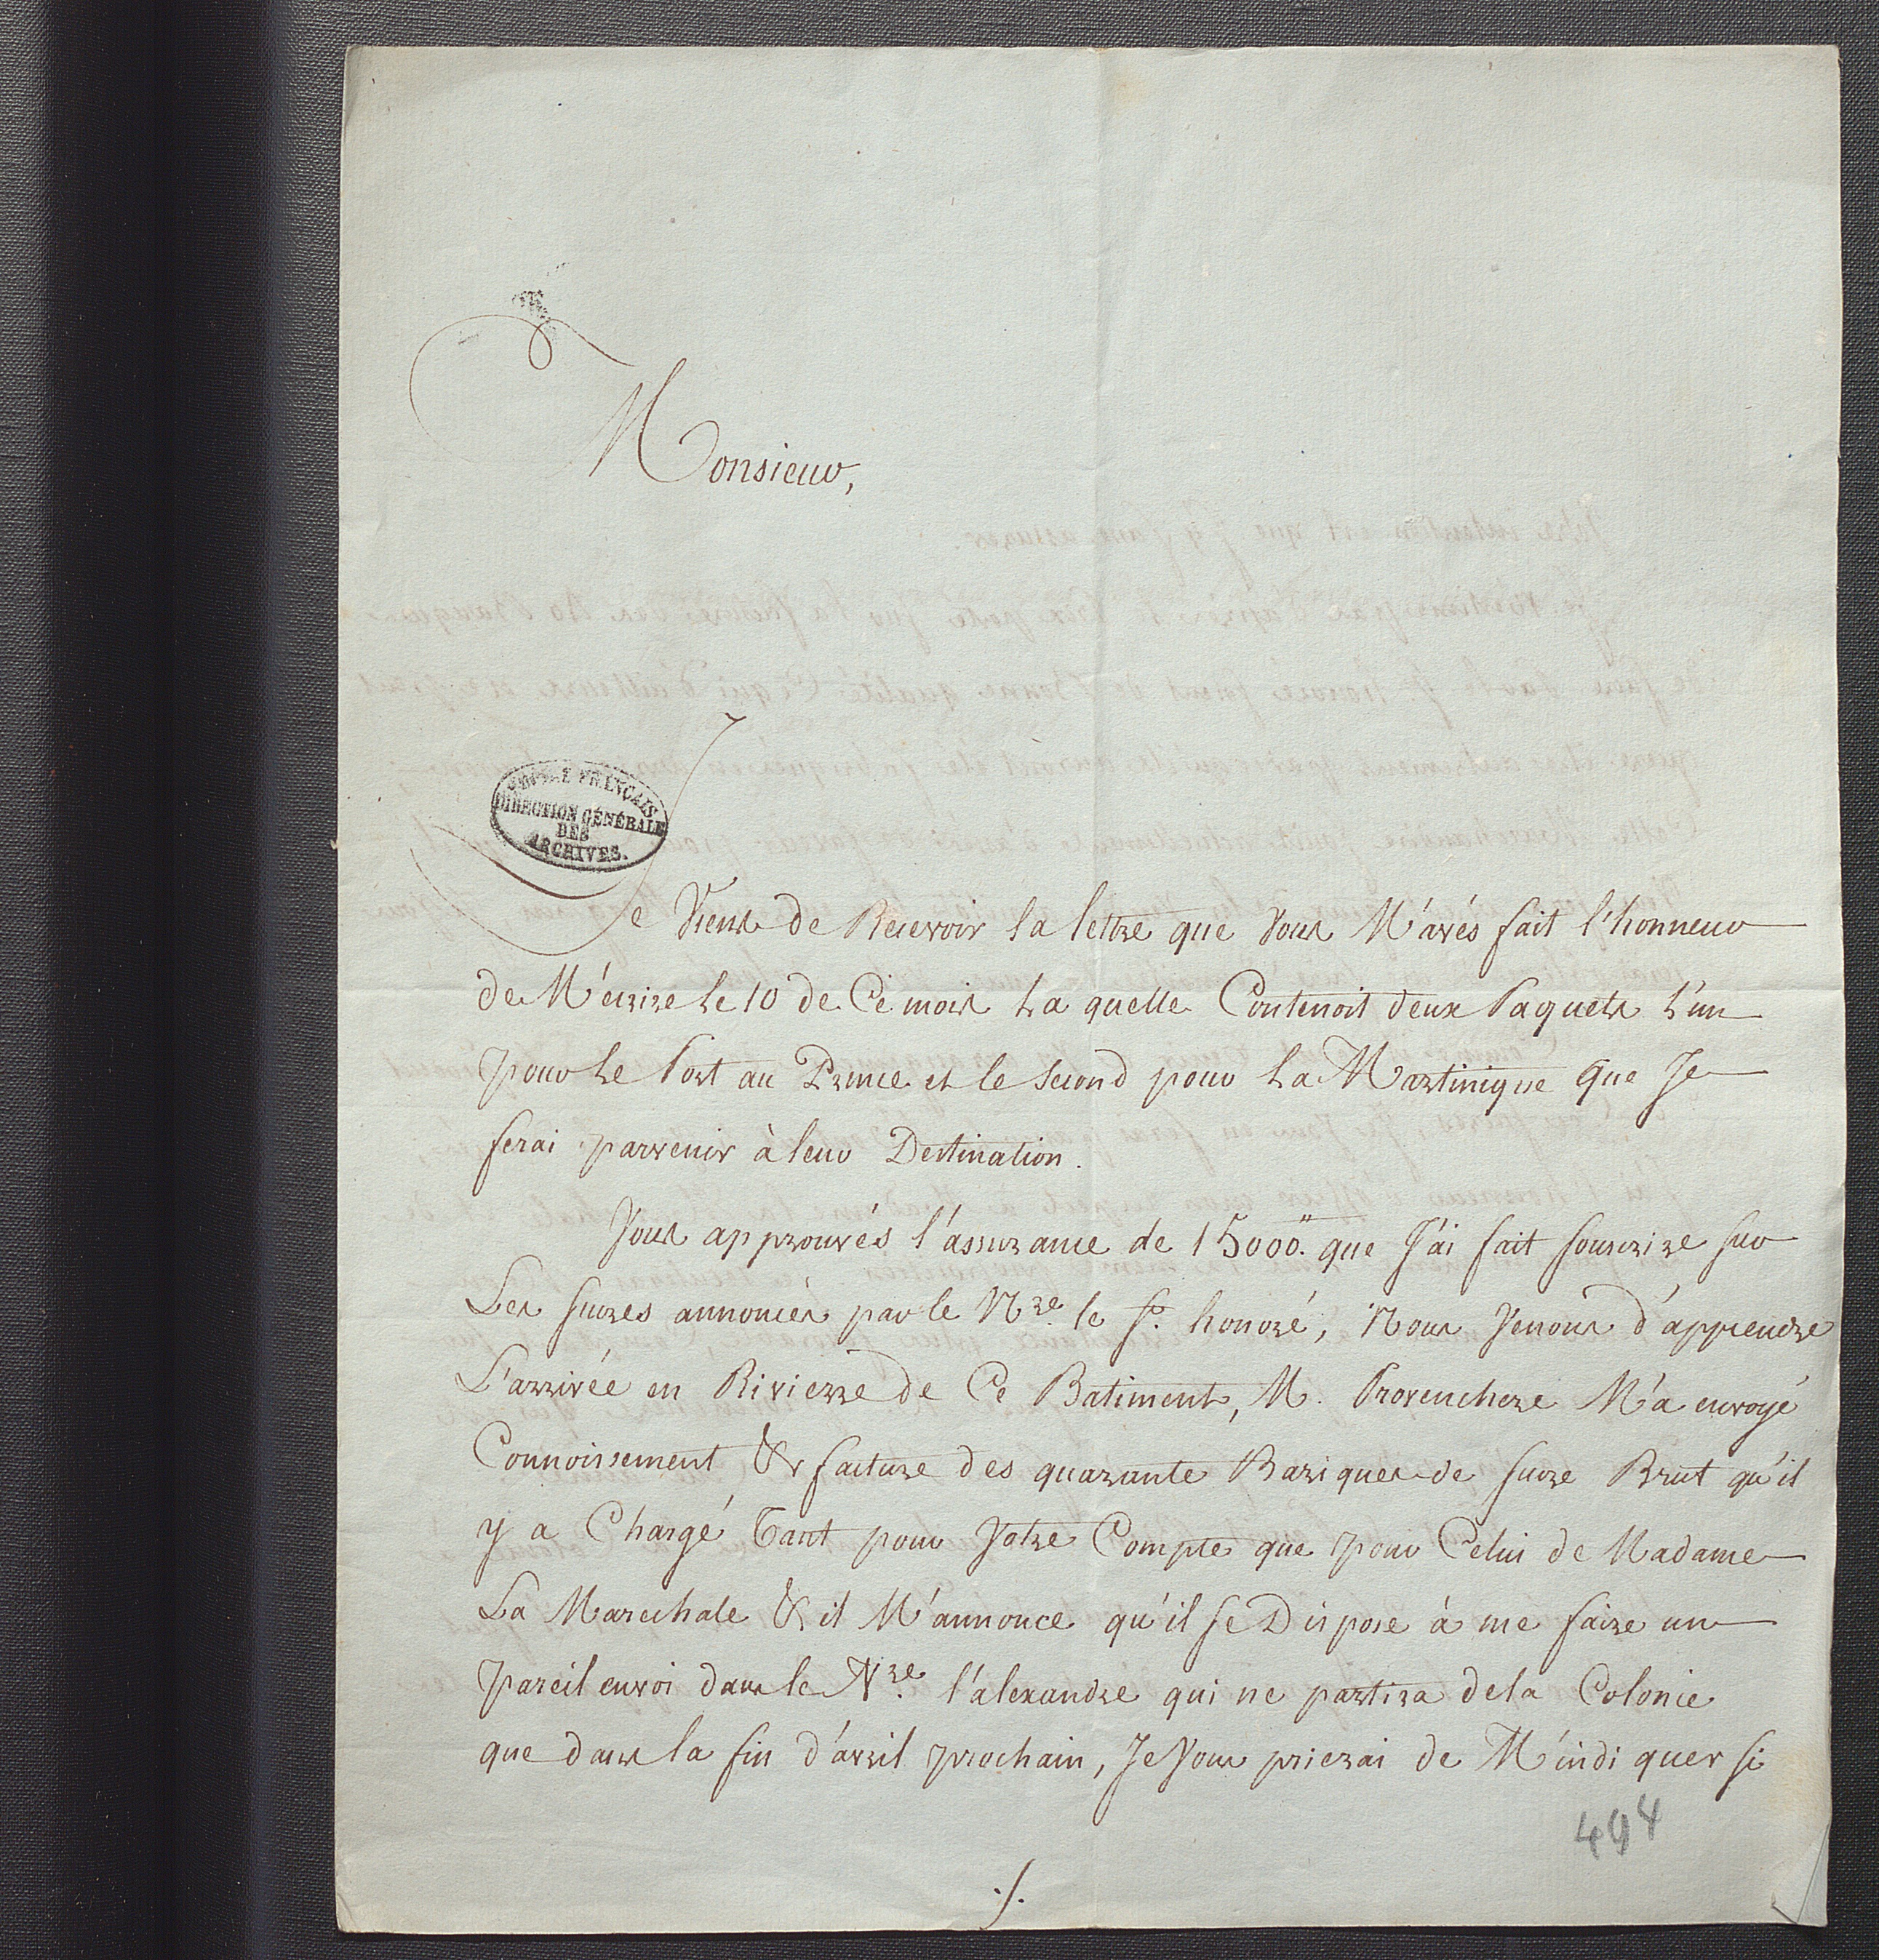 Monsieur,
EMPIRE FRANÇAIS
DIRECTION GÉNÉRALE
DES
ARCHIVES.
Je Viens de Recevoir la lettre que Vous M'avés fait l'honneur
de M'écrire le 10 de Ce mois La quelle Contenoit deux Paquets L'un
pour le Port au Prince et le second pour La Martinique que Je
ferai parvenir à leur Destination.
Vous approuvés l'assurance de 15000.ᵗᵗ que J'ai fait souscrire sur
Les sucres annoncés par le N.re le St. honoré, Nous Venons d'apprendre
L'arrivée en Rivierre de Ce Batiment, M. Provenchere M'a envoyé
Connoissement & facture des quarante Bariques de sucre Brut qu'il
y a Chargé Tant pour Votre Compte que pour Celui de Madame
La Marechale & il M'annonce qu'il se Dispose à me faire un
pareil envoi dans le N.re l'alexandre qui ne partira dela Colonie
que dans la fin d'avril prochain, Je Vous prierai de M'indiquer si
494
./.